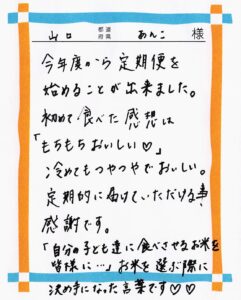 山口 都道府県 あんこ 様
今年度から定期便を
始めることが出来ました。
初めて食べた感想は
「もちもちおいしい♡」
冷めてもつやつやでおいしい。
定期的に届けていただける事、
感謝です。
「自分の子ども達に食べさせるお米を
皆様に…」お米を選ぶ際に
決め手になった言葉です♡♡